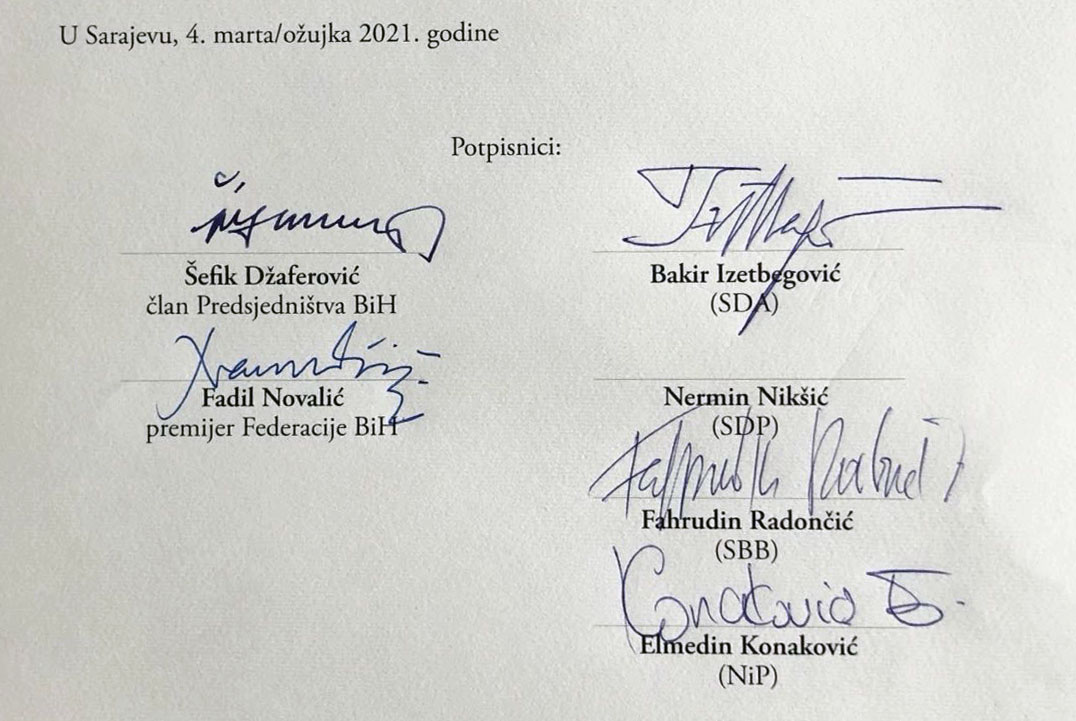 U Sarajevu, 4. marta/ožujka 2021. godine
Potpisnici:
Šefik Džaferović
član Predsjedništva BiH
Bakir Izetbegović
(SDA)
Fadil Novalić
premijer Federacije BiH
Nermin Nikšić
(SDP)
Fahrudin Radončić
(SBB)
Elmedin Konaković
(NiP)